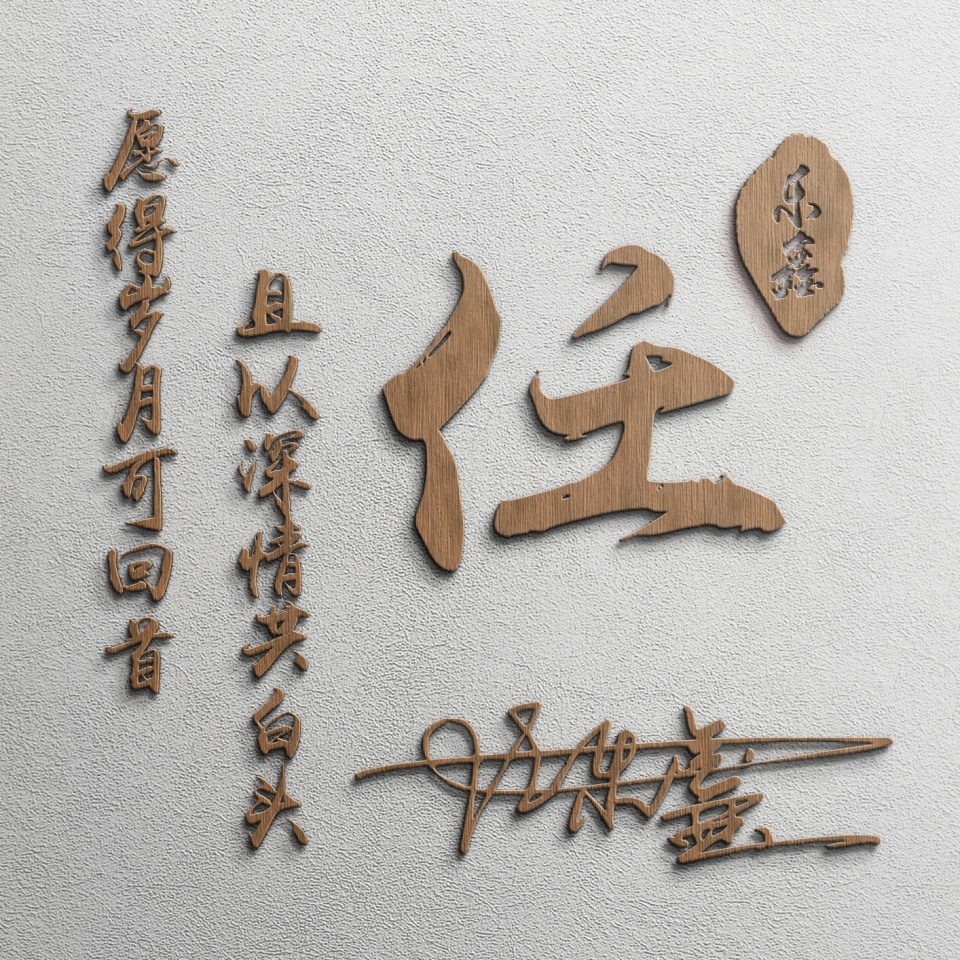 愿得岁月可回首
且以深情共白头
任
乐鑫
任乐鑫